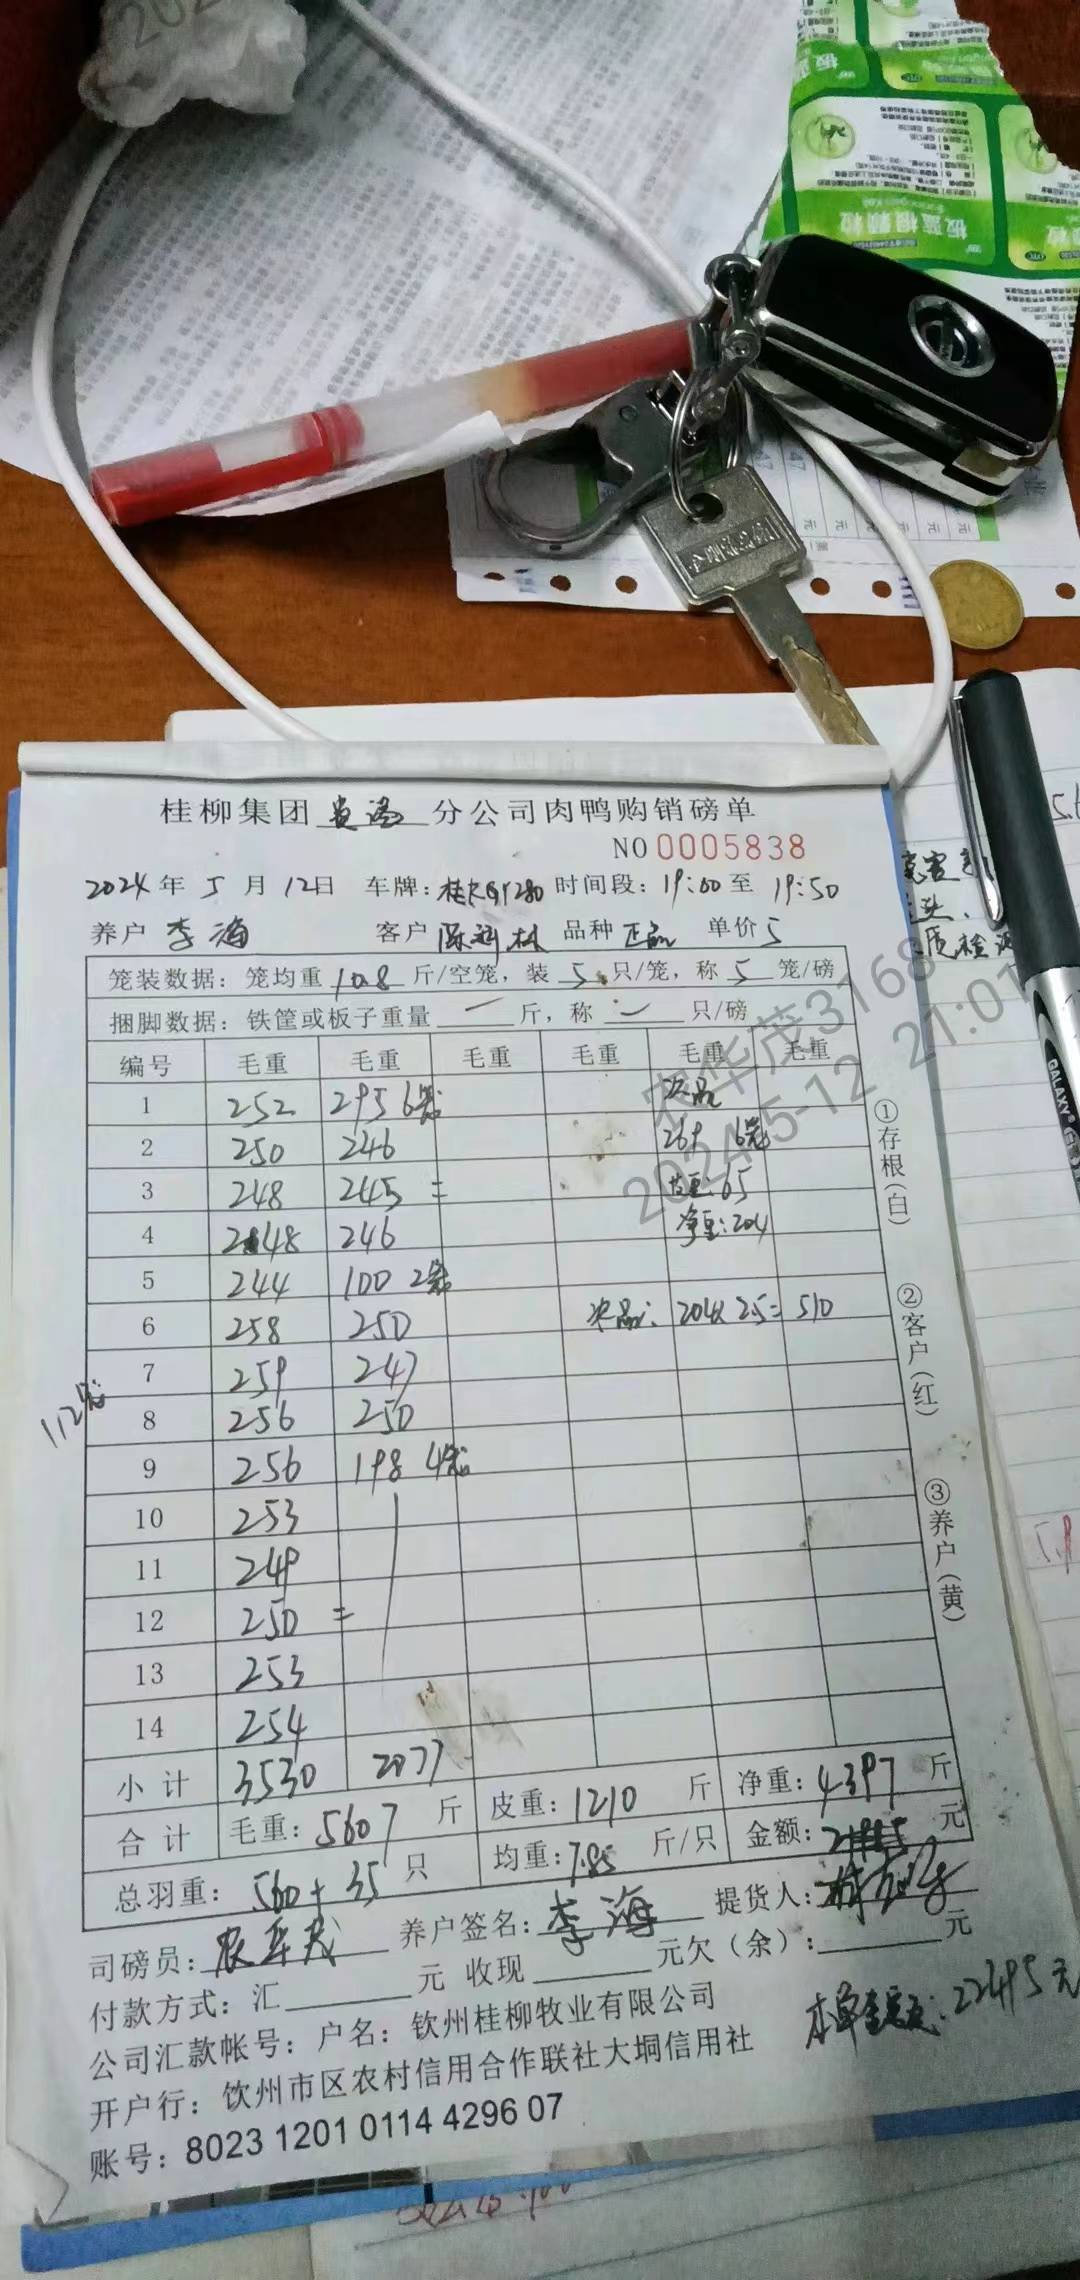 板蓝根颗粒
OTC
桂柳集团 贵港 分公司肉鸭购销磅单
NO 0005838
2024 年 5 月 12日 车牌: 时间段: 19:00 至 19:50
养户 李海 客户 品种 正品 单价 5
笼装数据: 笼均重 10.8 斤/空笼, 装 5 只/笼, 称 5 笼/磅
捆脚数据: 铁筐或板子重量 一 斤, 称 一 只/磅
编号 毛重 毛重 毛重 毛重 毛重 毛重
1 252 295 6笼 次品
2 250 246 269 6笼
3 248 245 = 皮重:65
4 248 246 净重:204
5 244 100 2笼
6 258 250 次品: 204x2.5=510
7 259 247
112笼
8 256 250
9 256 198 4笼
10 253
11 249
12 250 =
13 253
14 254
小计 3530 2077
合计 毛重: 5607 斤 皮重: 1210 斤 净重: 4397 斤
总羽重: 560+35 只 均重: 7.85 斤/只 金额: 21985 元
司磅员: 农华茂 养户签名: 李海 提货人:
付款方式: 汇 元 收现 元欠(余): 元
本单金额: 22495元
公司汇款帐号: 户名: 钦州桂柳牧业有限公司
开户行: 钦州市区农村信用合作联社大垌信用社
账号: 8023 1201 0114 4296 07
①存根(白)
②客户(红)
③养户(黄)
农华茂3168
2024-5-12 21:01
GALAXY